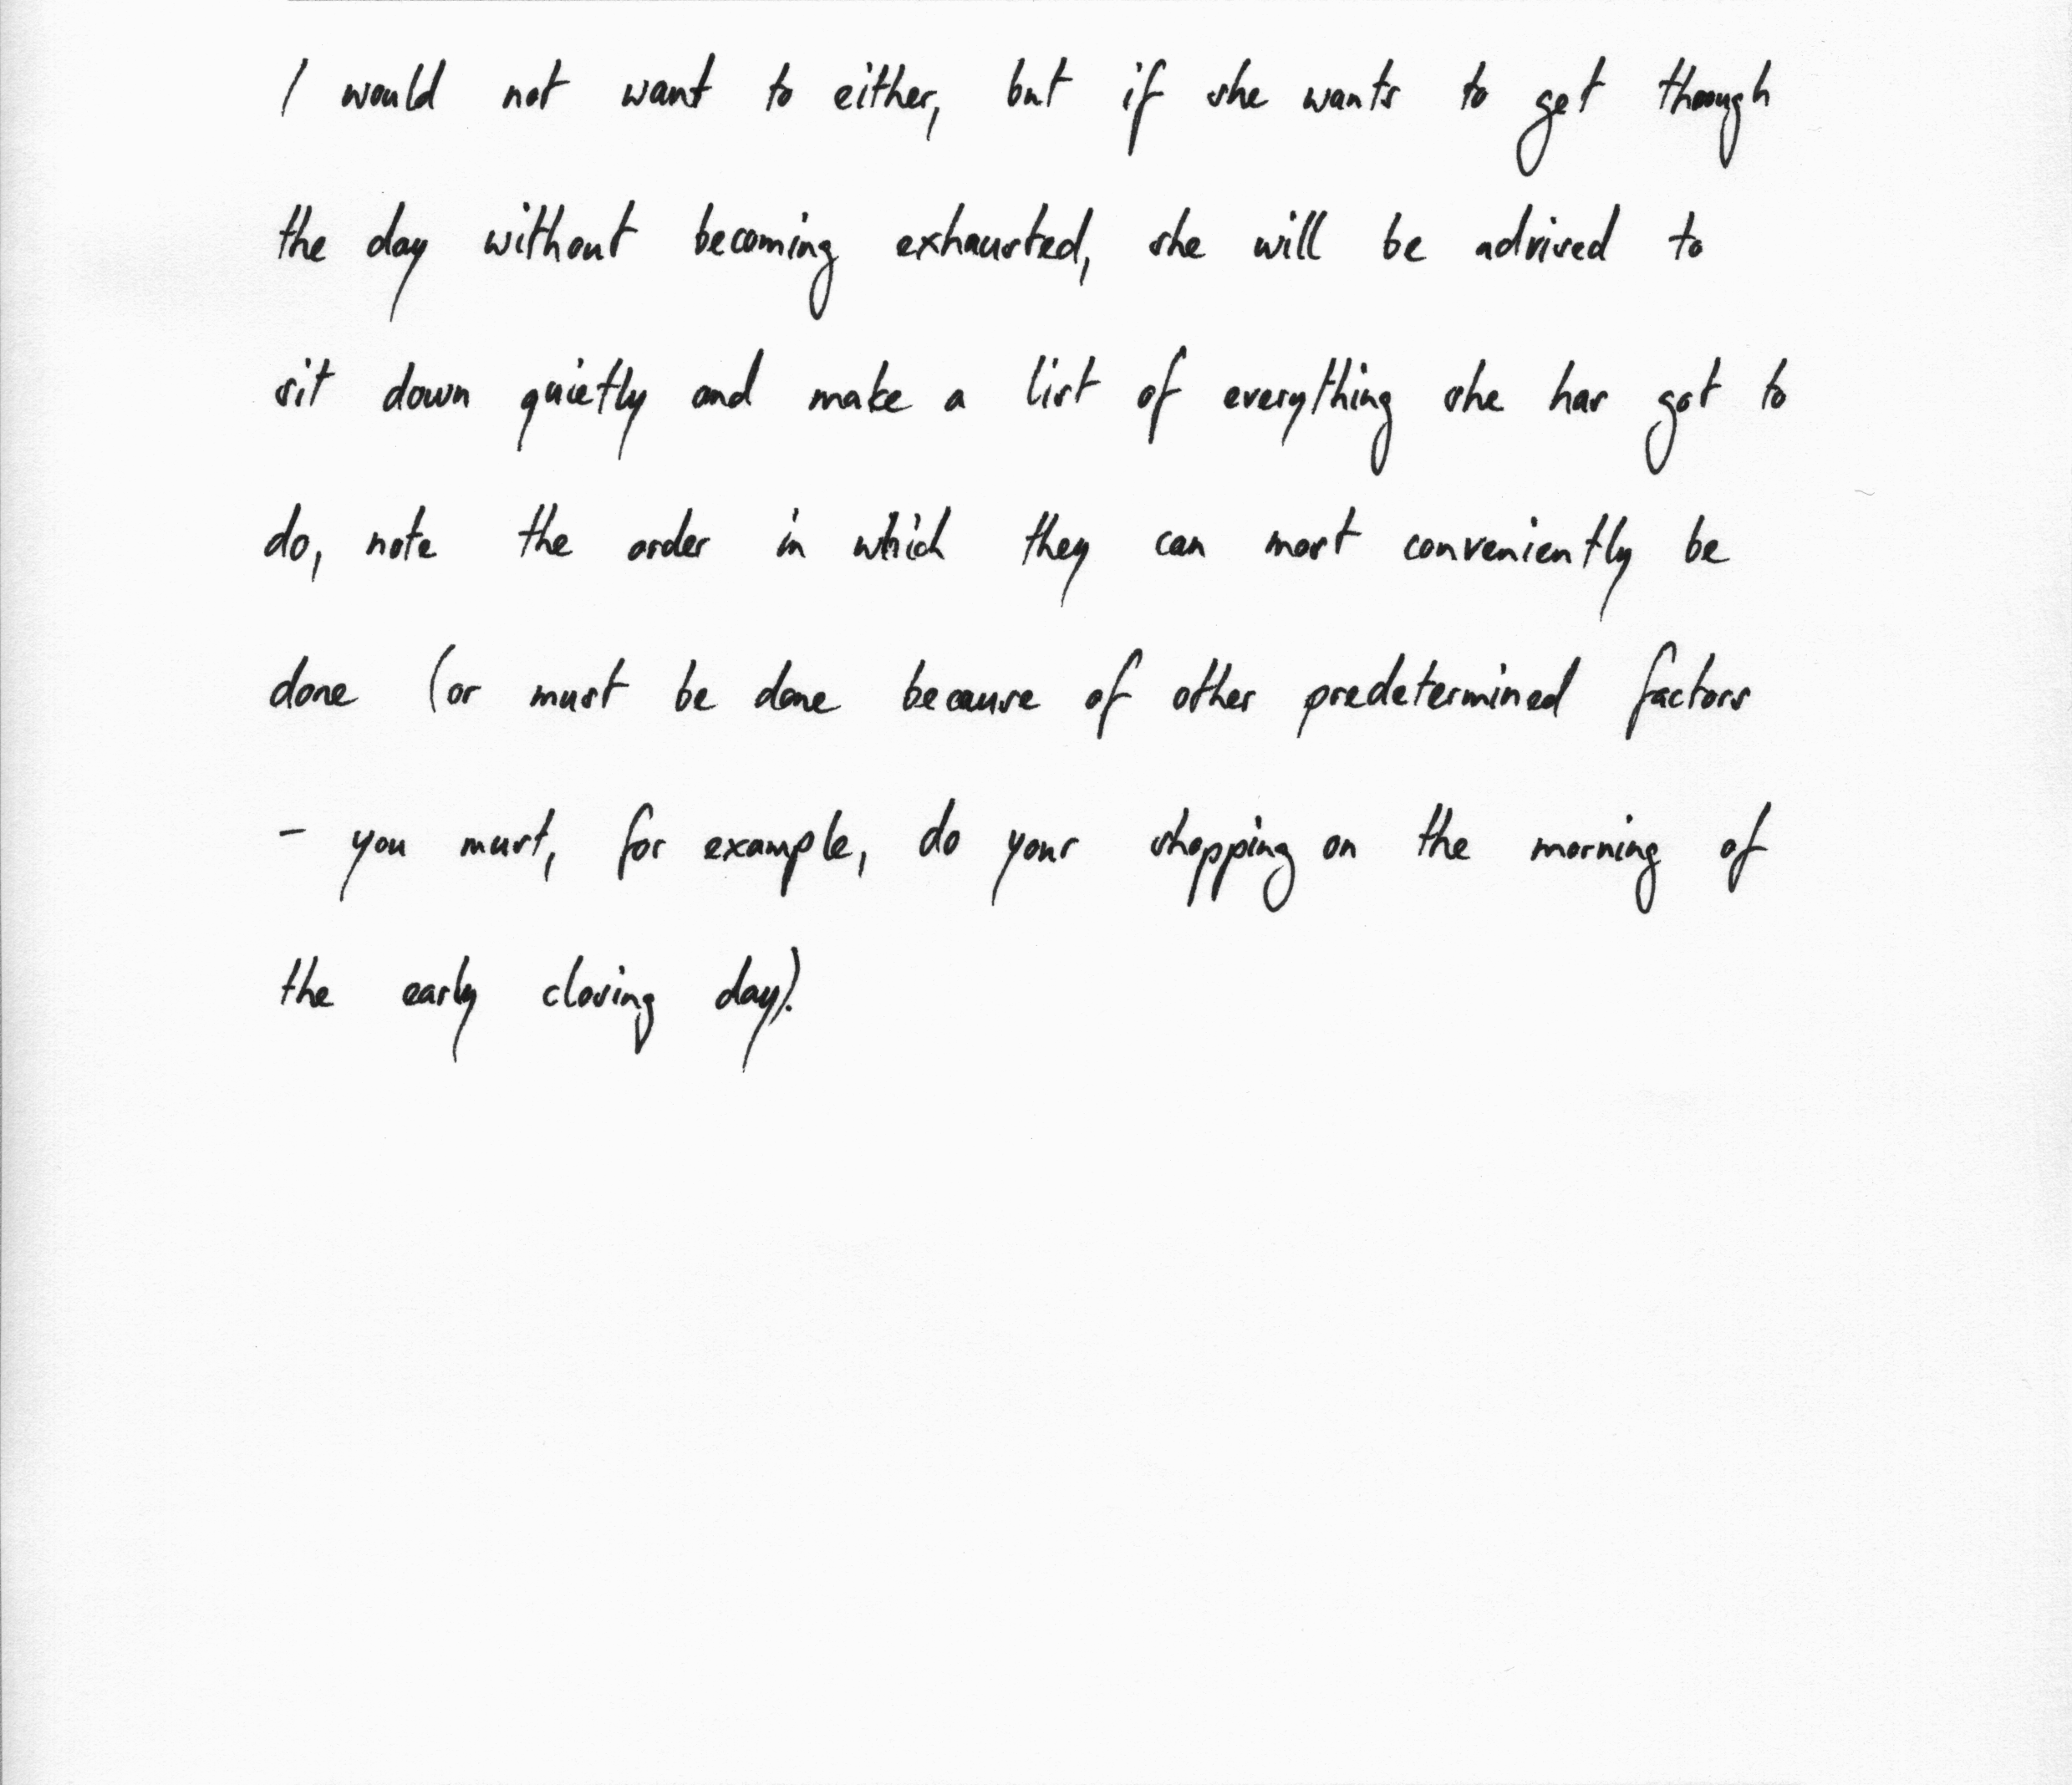 I would not want to either, but if she wants to get through
the day without becoming exhausted, she will be advised to
sit down quietly and make a list of everything she has got to
do, note the order in which they can most conveniently be
done (or must be done because of other predetermined factors
- you must, for example, do your shopping on the morning of
the early closing day).